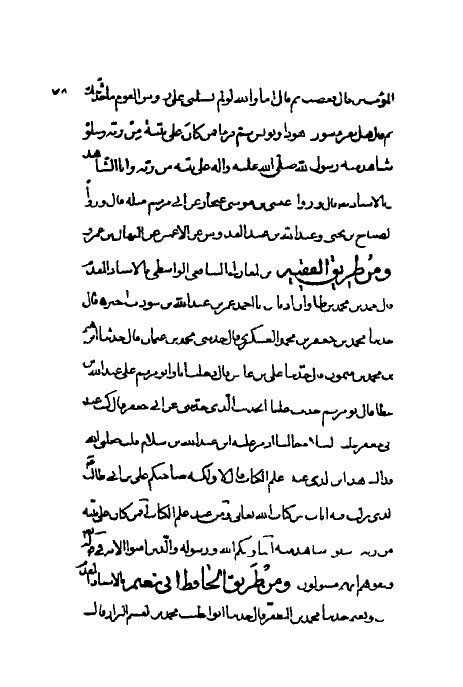 المؤمنين قال فغضب ثم قال أما والله لو لم تسلني على روس القوم ما حدثتك ٧٨
ثم هل تقرء سورة هود ويونس ثم قرا افمن كان على بينة من ربه ويتلوه
شاهد منه رسول الله صلى الله عليه واله على بينة من ربه وانا الشاهد
بالاسناد منه قال وروا عيسى بن موسى غنجار عن ابي مريم مثله قال وروا
لصباح بن يحيى وعبد الله بن عبد القدوس عن الاعمش عن المنهال بن عمرو
ومن طريق الفقيه بن المغازلي الشافعي الواسطي بالاسناد المقدم
قال احمد بن محمد بن ابا احمد عمر بن عبد الله بن شوذب اخبره قال
حدثنا محمد بن جعفر بن محمد العسكري قال حدثني محمد بن عثمان قال حدثنا ابرهيم
بن محمد بن ميمون قال حدثنا علي بن عابس قال دخلت انا وابو مريم على عبد الله بن
عطا قال ابو مريم حدث عليا الحديث الذي حدثتني عن ابي جعفر قال كنت عند
ابي جعفر جالسا اذ مر عليه ابن عبد الله بن سلام قلت جعلني الله
فداك هذا ابن الذي عنده علم الكتاب قال لا ولكنه صاحبكم علي بن ابي طالب
لذي نزلت فيه ايات من كتاب الله تعالى ومن عنده علم الكتاب افمن كان على بينة
من ربه ويتلوه شاهد منه انما وليكم الله ورسوله والذين امنوا الاية
وقفوهم انهم مسولون ومن طريق الحافظ ابي نعيم بالاسناد المقدم
حدثنا محمد بن المظفر قال حدثنا ابو الطيب محمد بن القسم البزاز قال